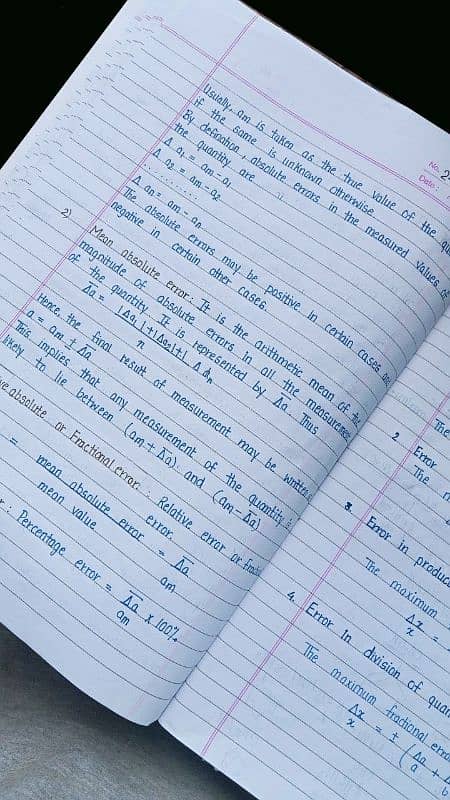 No. 2
Date :
Usually am is taken as the true value of the
if the same is unknown otherwise.
By defination, absolute errors in the measured values of
the quantity are
Δ a₁ = am - a₁
Δ a₂ = am - a₂
........
Δ an = am - an
The absolute errors may be positive in certain cases
negative in certain other cases.
2) Mean absolute error : It is the arithmetic mean of the
magnitude of absolute errors in all the
of the quantity. It is represented by Δ̅a̅. Thus
Δ̅a̅ = |Δa₁|+|Δa₂|+|
n
Hence, the final result of measurement may be written
a = am ± Δ̅a̅
This implies that any measurement of the quantity is
likely to lie between (am + Δ̅a̅) and (am - Δ̅a̅)
absolute or Fractional error : Relative error or
error.
= mean absolute error = Δ̅a̅
mean value am
: Percentage error = Δ̅a̅ x 100%
am
The
2. Error
The
3. Error in
The maximum
Δx =
x
4. Error In division of
The maximum fractional
Δx = ± (Δa +
x a b